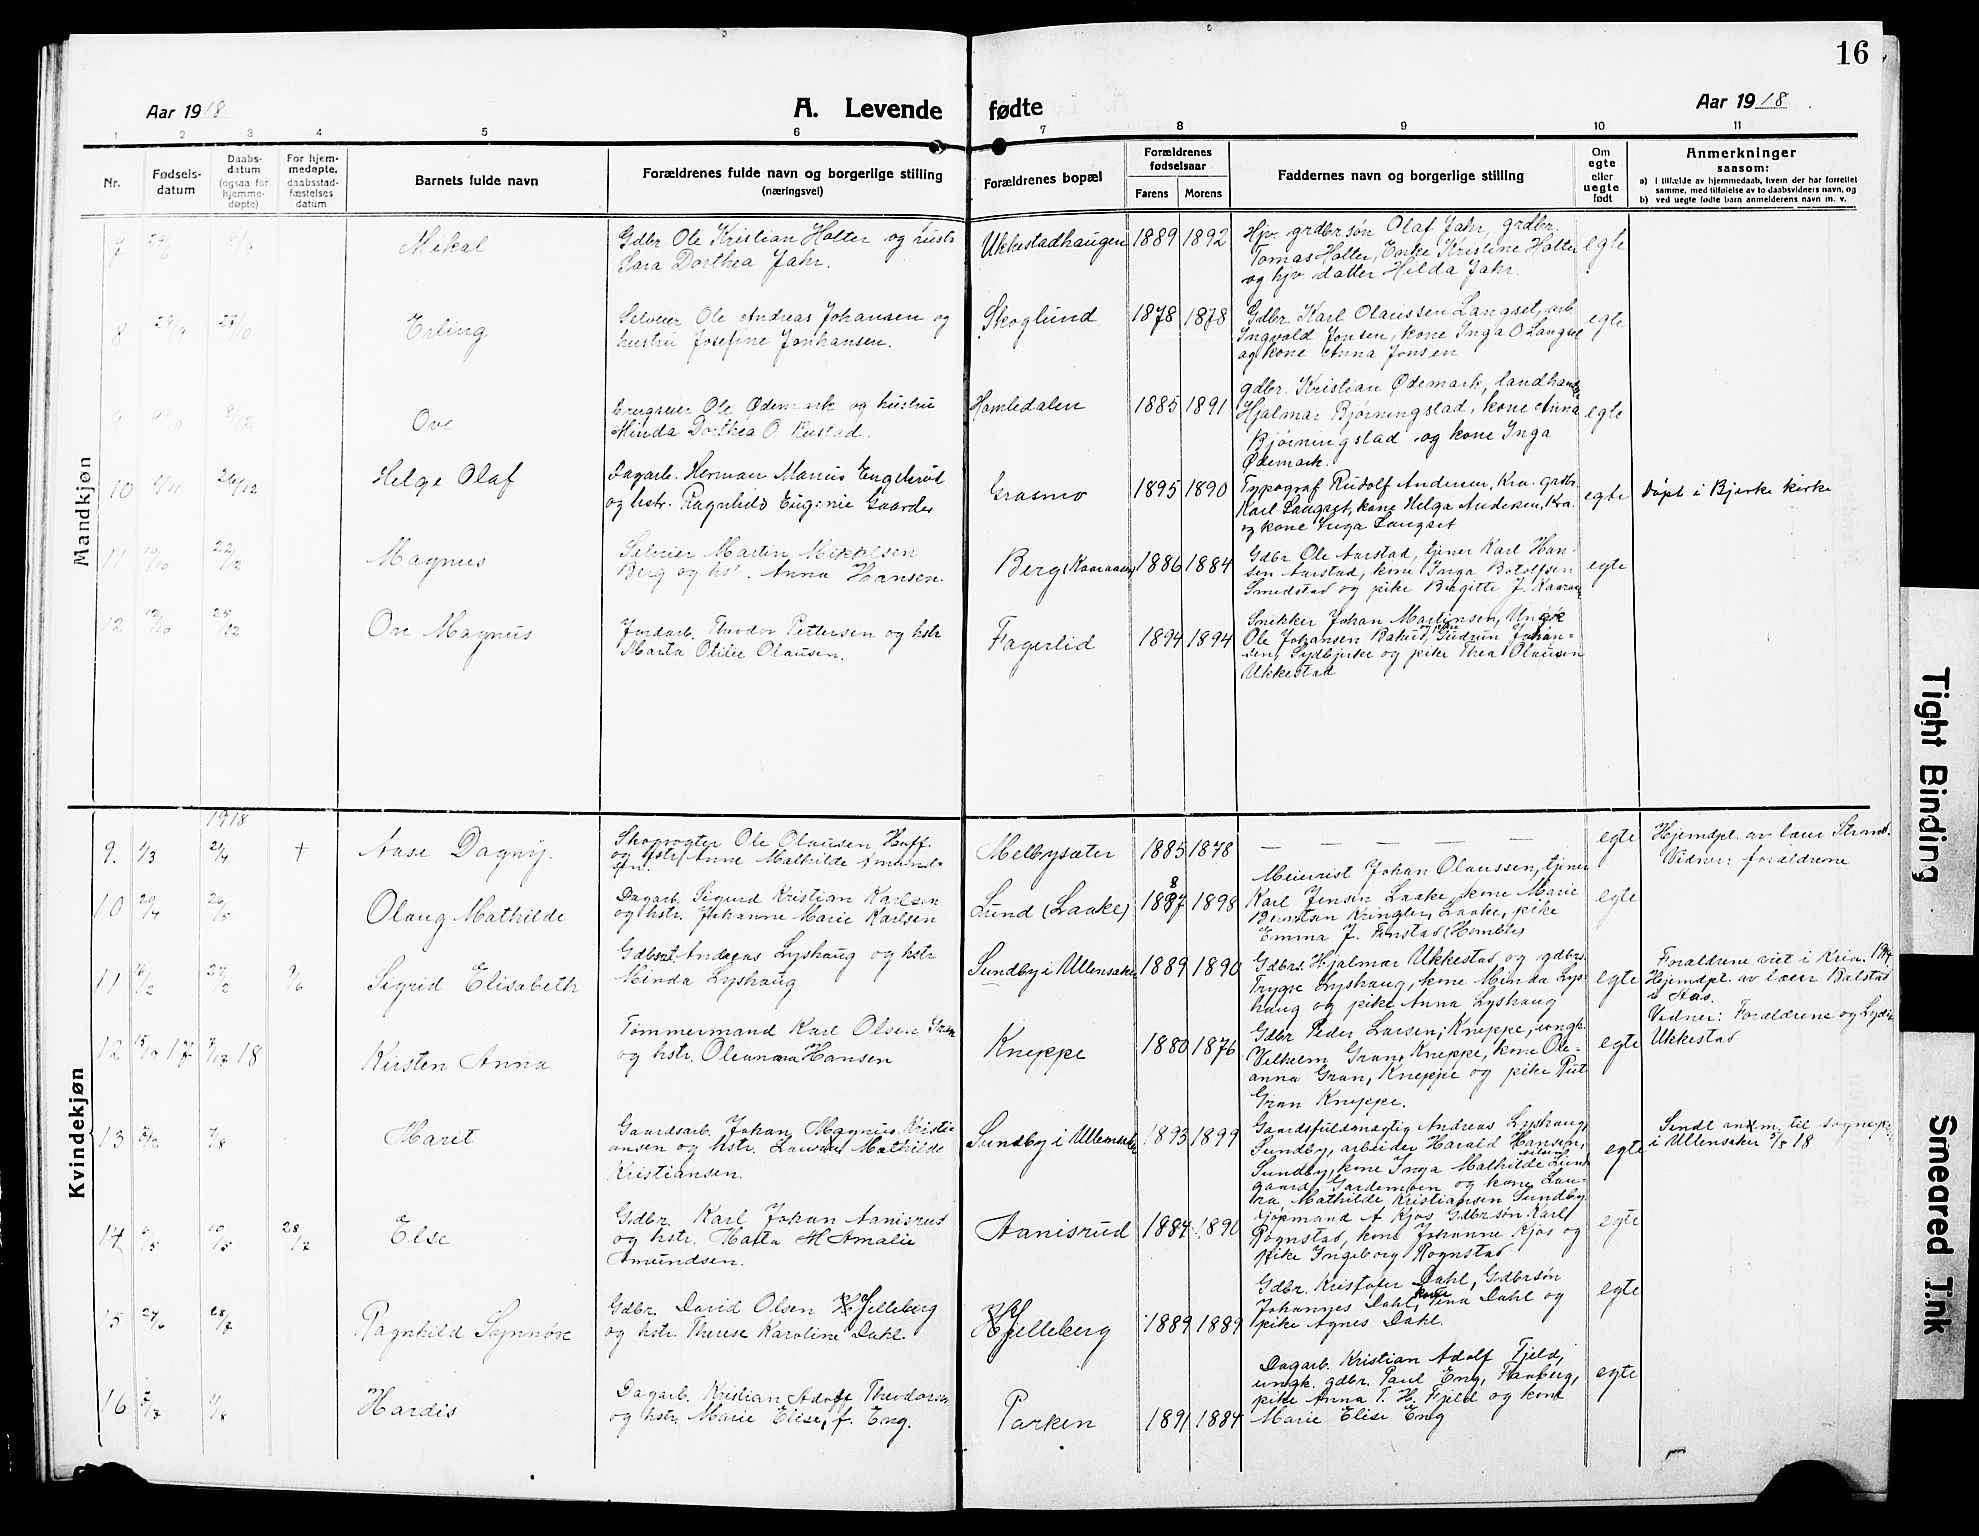 16
Aar 1918
A. Levende fødte
Aar 1918
1 2 3 4 5 6 7 8 9 10 11
Nr.
Fødsels-
datum
Daabs-
datum
(ogsaa for
hjemme-
døpte)
For hjem-
medøpte,
daabsstad-
fæstelses
datum
Barnets fulde navn
Forældrenes fulde navn og borgerlige stilling
(næringsvei)
Forældrenes bopæl
Forældrenes
fødselsaar
Farens Morens
Faddernes navn og borgerlige stilling
Om
egte
eller
uegte
født
Anmerkninger
saasom:
a) i tilfælde av hjemmedaab, hvem der har forrettet
samme, med tilføielse av to daabsvidners navn, og
b) ved uegte fødte barn anmelderens navn m. v.
Mandkjøn
7
Mekal
Gdbr Ole Kristian Holter og hustr
Sara Dorthea Jahr.
Ukkestadhaugen
1889 1892
Hjv. grdbrsøn Olaf Jahr, grdbr.
Tomas Holter, Enke Kristine Holter
og hjv. datter Hilda Jahr.
egte
8 29/9 27/10
Erling
Selveier Ole Andreas Johansen og
hustru Josefine Jonhansen.
Skoglund
1878 1878
Gdbr. Karl Olaussen Langset, arb.
Ingvald Jonsen, kone Inga O. Langset
og kone Anna Jonsen
egte
9 6/10 8/12
Ove
brugseier Ole Ødemark og hustru
Minda Dorthea O. Rustad.
Homledalen
1885 1891
gdbr. Kristian Ødemark, landhandl
Hjalmar Bjørningstad, kone Anna
Bjørningstad og kone Inga
Ødemark.
egte
10 26/12
Helge Olaf
Dagarb. Herman Marius Engelsrud
og hstr. Ragnhild Eugenie Gaarder
Grasmo
1895 1890
Typograf Rudolf Andersen, Kra. grdbr.
Karl Langset, kone Helga Andersen, Kra.
og kone Inga Langset
egte
Døpt i Bjerke kirke
11 10/10 22/12
Magnus
Selveier Martin Mikkelsen
Berg og hst. Anna Hansen.
Berg (Kaaraasen)
1886 1884
Gdbr. Ole Aarstad, tjener Karl Han-
sen Aarstad, kone Inga Botolfsen
Smedstad og pike Birgitte J. Kaaraas
egte
12 12/10 25/12
Ove Magnus
Jordarb. Theodor Pettersen og hstr
Marta Otilie Olausen.
Fagerlid
1894 1894
Snekker Johan Martinsen, Ungk
Ole Johansen Bakud, pike Gudrun Johan-
sen, Sydbjerke og pike Thea Olausen
Ukkestad
Kvindekjøn
1918
9. 1/3 21/4 +
Aase Dagny.
Skogvogter Ole Olausen Hoff
og hstr. Anne Mathilde Amund-
sen.
Melbysæter
1885 1878
— — — — — —
egte
Hjemdpt. av lærer Strand.
Vidner: forældrene
10 29/4 26/5
Olaug Mathilde
Dagarb. Sigurd Kristian Karlsen
og hstr. Johanne Marie Karlsen
Lund (Laake)
1887 1898
8
Meierist Johan Olaussen, tjener
Karl Jensen Laake, kone Marie
Berntsan Kringler, Laake, pike
Emma J. Finstad (Homble)
egte
11 27/2 9/6
Sigrid Elisabeth
Gdbrsøt. Andreas Lyshaug og hstr
Minda Lyshaug
Sundby i Ullensaker
1889 1890
Gdbrs. Hjalmar Ukkestad og gdbrs.
Trygve Lyshaug, kone Minda Lys-
haug og pike Anna Lyshaug
egte
Forældrene viet i Kria. 1914
Hjemdpt. av lærer Balstad
i Aas.
Vidner: Forældrene og Lydia
Ukkestad
12 15/9 17 18
Kirsten Anna
Tømmermand Karl Olsen Gran
og hstr. Oleanna Hansen
Kneppe
1880 1876
Gdbr Peder Larsen, Kneppe, ungk.
Vilhelm Gran, Kneppe, kone Ole-
anna Gran, Kneppe og pike Rut
Gran Kneppe.
egte
13 7/8
Marit
Gaardsarb. Johan Magnus Kristi-
ansen og hstr. Laura Mathilde
Kristiansen.
Sundby i Ullensaker
1893 1899
Gaardsfuldmægtig Andreas Lyshaug,
Sundby, arbeider Harald Hansen,
Sundby, kone Inga Mathilde Lund-
gaard, Gardemoen og kone Lau-
ra Mathilde Kristiansen Sundby.
egte
Sendt anm. til sognepr.
i Ullensaker 8/8 18
14 6/5 19/5 28/7
Else
Gdbr. Karl Johan Aanisrud
og hstr. Marta M Amalie
Amundsen.
Aanisrud
1884 1890
Kjøpmand A Kjos Gdbrsøn Karl
Rognstad, kone Johanne Kjos og
pike Ingeborg Rognstad
egte
15 27/6 28/7
Ragnhild Synnøve
Gdbr. David Olsen Hjelleberg
og hstr. Therese Karoline Dahl.
Hjelleberg
1889 1889
Gdbr. Kristofer Dahl, Gdbrsøn
Johannes Dahl, kone Tina Dahl og
pike Agnes Dahl.
egte
16
Hardis
Dagarb. Kristian Adolf Theodorsen
og hstr. Marie Elise, f. Eng.
Parken
1891 1884
Dagarb. Kristian Adolf Fjeld,
ungk. gdbr. Paul Eng, Faaberg,
pike Anna T. H. Fjeld og kone
Marie Elise Eng
egte
Tight Binding
Smeared Ink